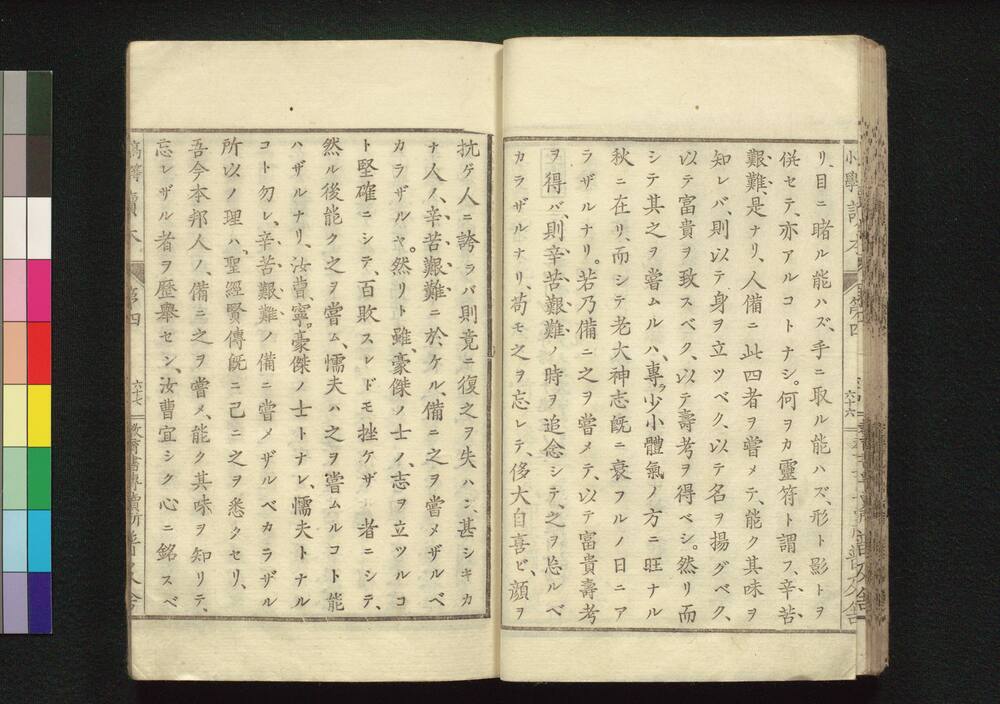 リ、目ニ睹ル能ハズ、手ニ取ル能ハズ、形ト影トヲ
倂セテ、亦アルコトナシ。何ヲカ靈符ト謂フ、辛苦
艱難、是ナリ、人備ニ此四者ヲ嘗メテ、能ク其味ヲ
知レバ、則以テ身ヲ立ツベク、以テ名ヲ揚グベク、
以テ富貴ヲ致スベク、以テ壽考ヲ得ベシ。然リ而
シテ其之ヲ嘗ムルハ、專ラ少小體氣ノ方ニ旺ナル
秋ニ在リ、而シテ老大神志旣ニ衰フルノ日ニア
ラザルナリ。若乃備ニ之ヲ嘗メテ、以テ富貴壽考
ヲ得バ、則辛苦艱難ノ時ヲ追念シテ、之ヲ忽ルベ
カラザルナリ、苟モ之ヲ忘レテ、侈大自喜ビ、顔ヲ
抗ゲ人ニ誇ラバ則竟ニ復之ヲ失ハン、甚シキカ
ナ人ノ、辛苦艱難ニ於ケル、備ニ之ヲ嘗メザルベ
カラザルヤ。然リト雖、豪傑ノ士ノ、志ヲ立ツルコ
ト堅確ニシテ、百敗スレドモ挫ケザ 者ニシテ、
然ル後能ク之ヲ嘗ム、懦夫ハ之ヲ嘗ムルコト能
ハザルナリ、汝曹、寧豪傑ノ士トナレ、懦夫トナル
コト勿レ、辛苦艱難ノ備ニ嘗メザルベカラザル
所以ノ理ハ、聖經賢傳旣ニ已ニ之ヲ悉クセリ、
吾今本邦人ノ、備ニ之ヲ嘗メ、能ク其味ヲ知リテ、
忘レザル者ヲ歷擧セン、汝曹宜シク心ニ銘スベ
高等讀本 第四 六十七 敎育書專賣所普及舍